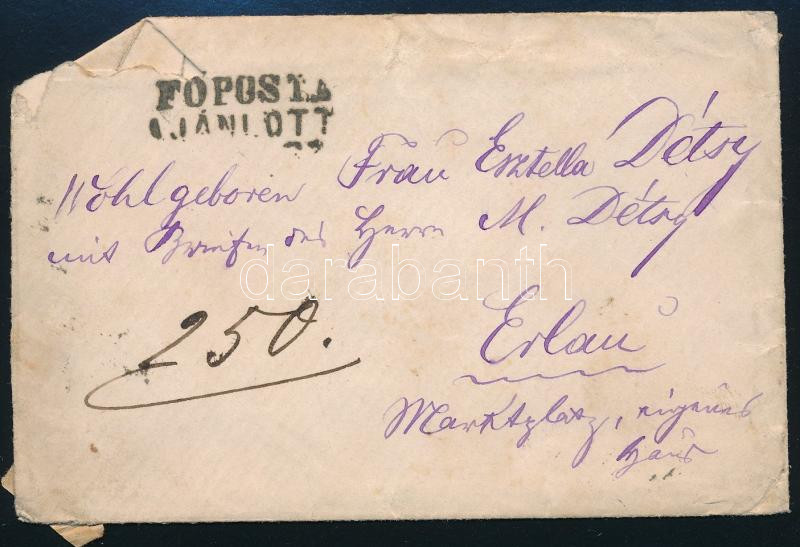 FŐPOSTA
AJÁNLOTT
Wohlgeboren Frau Esztella Détsy
mit Briefen des Herrn M. Détsy
darabanth
250.
Erlau
Marktplatz, eigenes
Haus